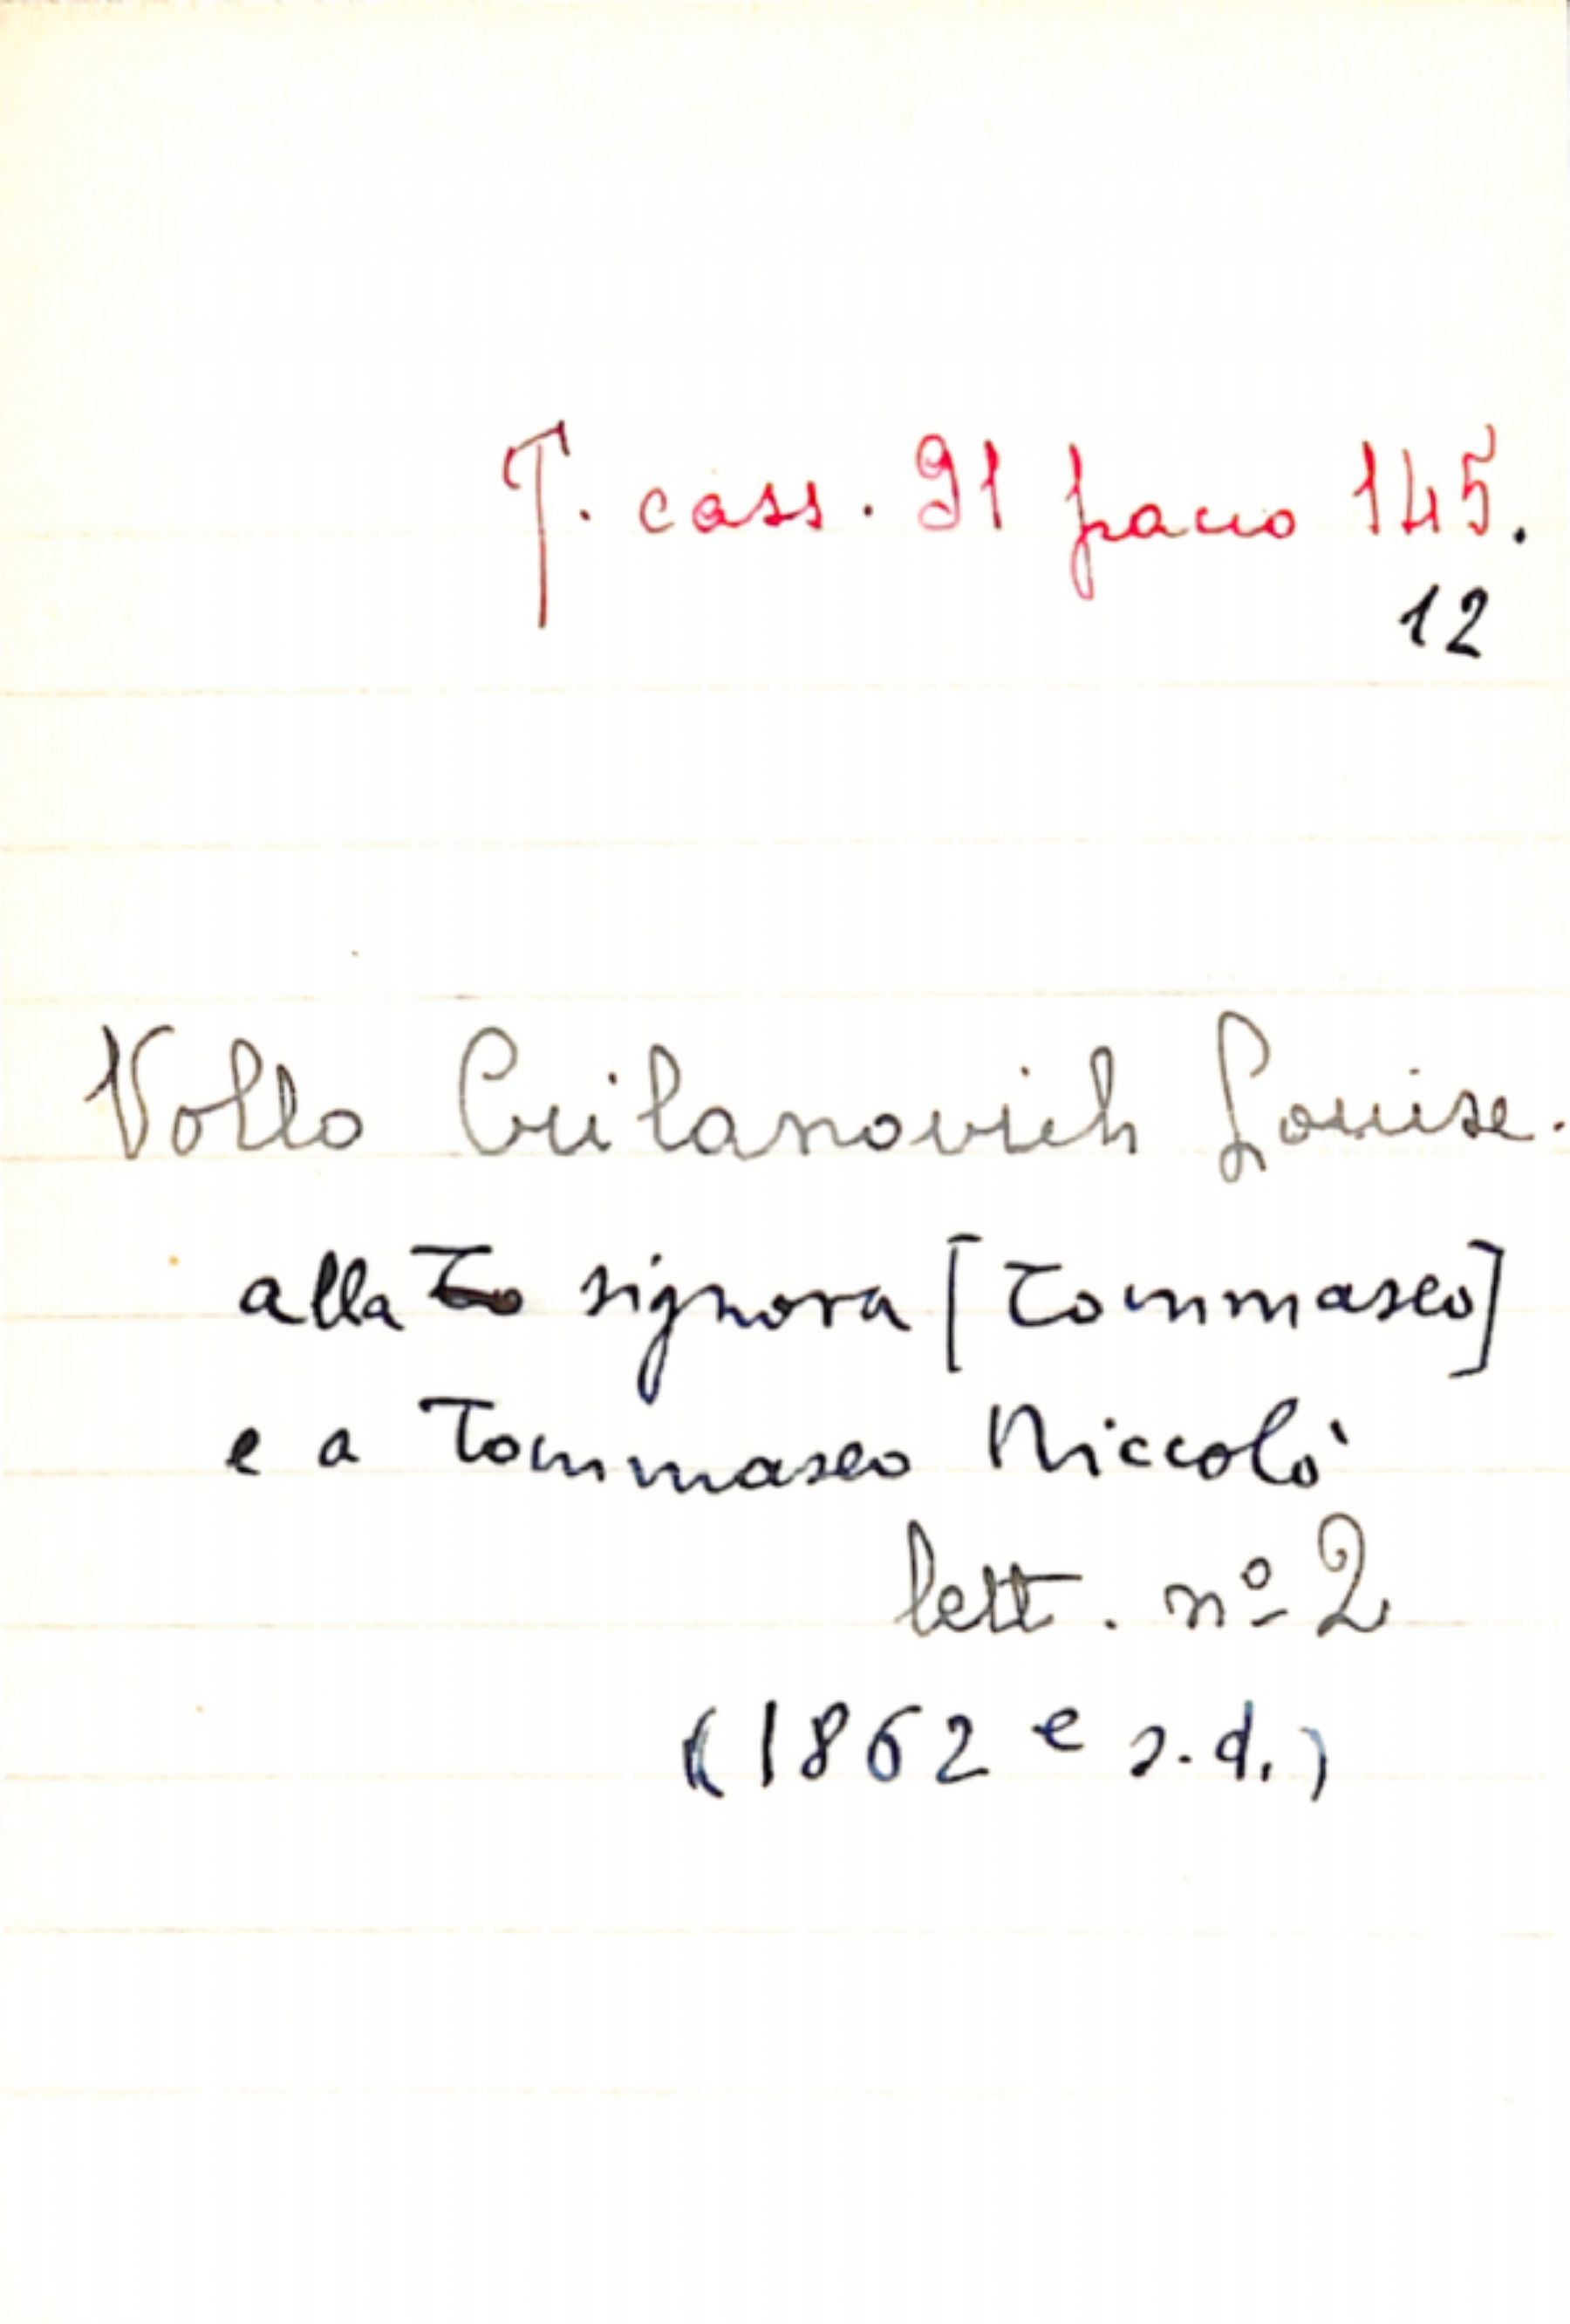 T. cass. 91 pacco 145.
12
Vollo Louise.
alla signora [Tommaseo]
e a Tommaseo Niccolò
lett. nº 2
(1862 e s.d.)